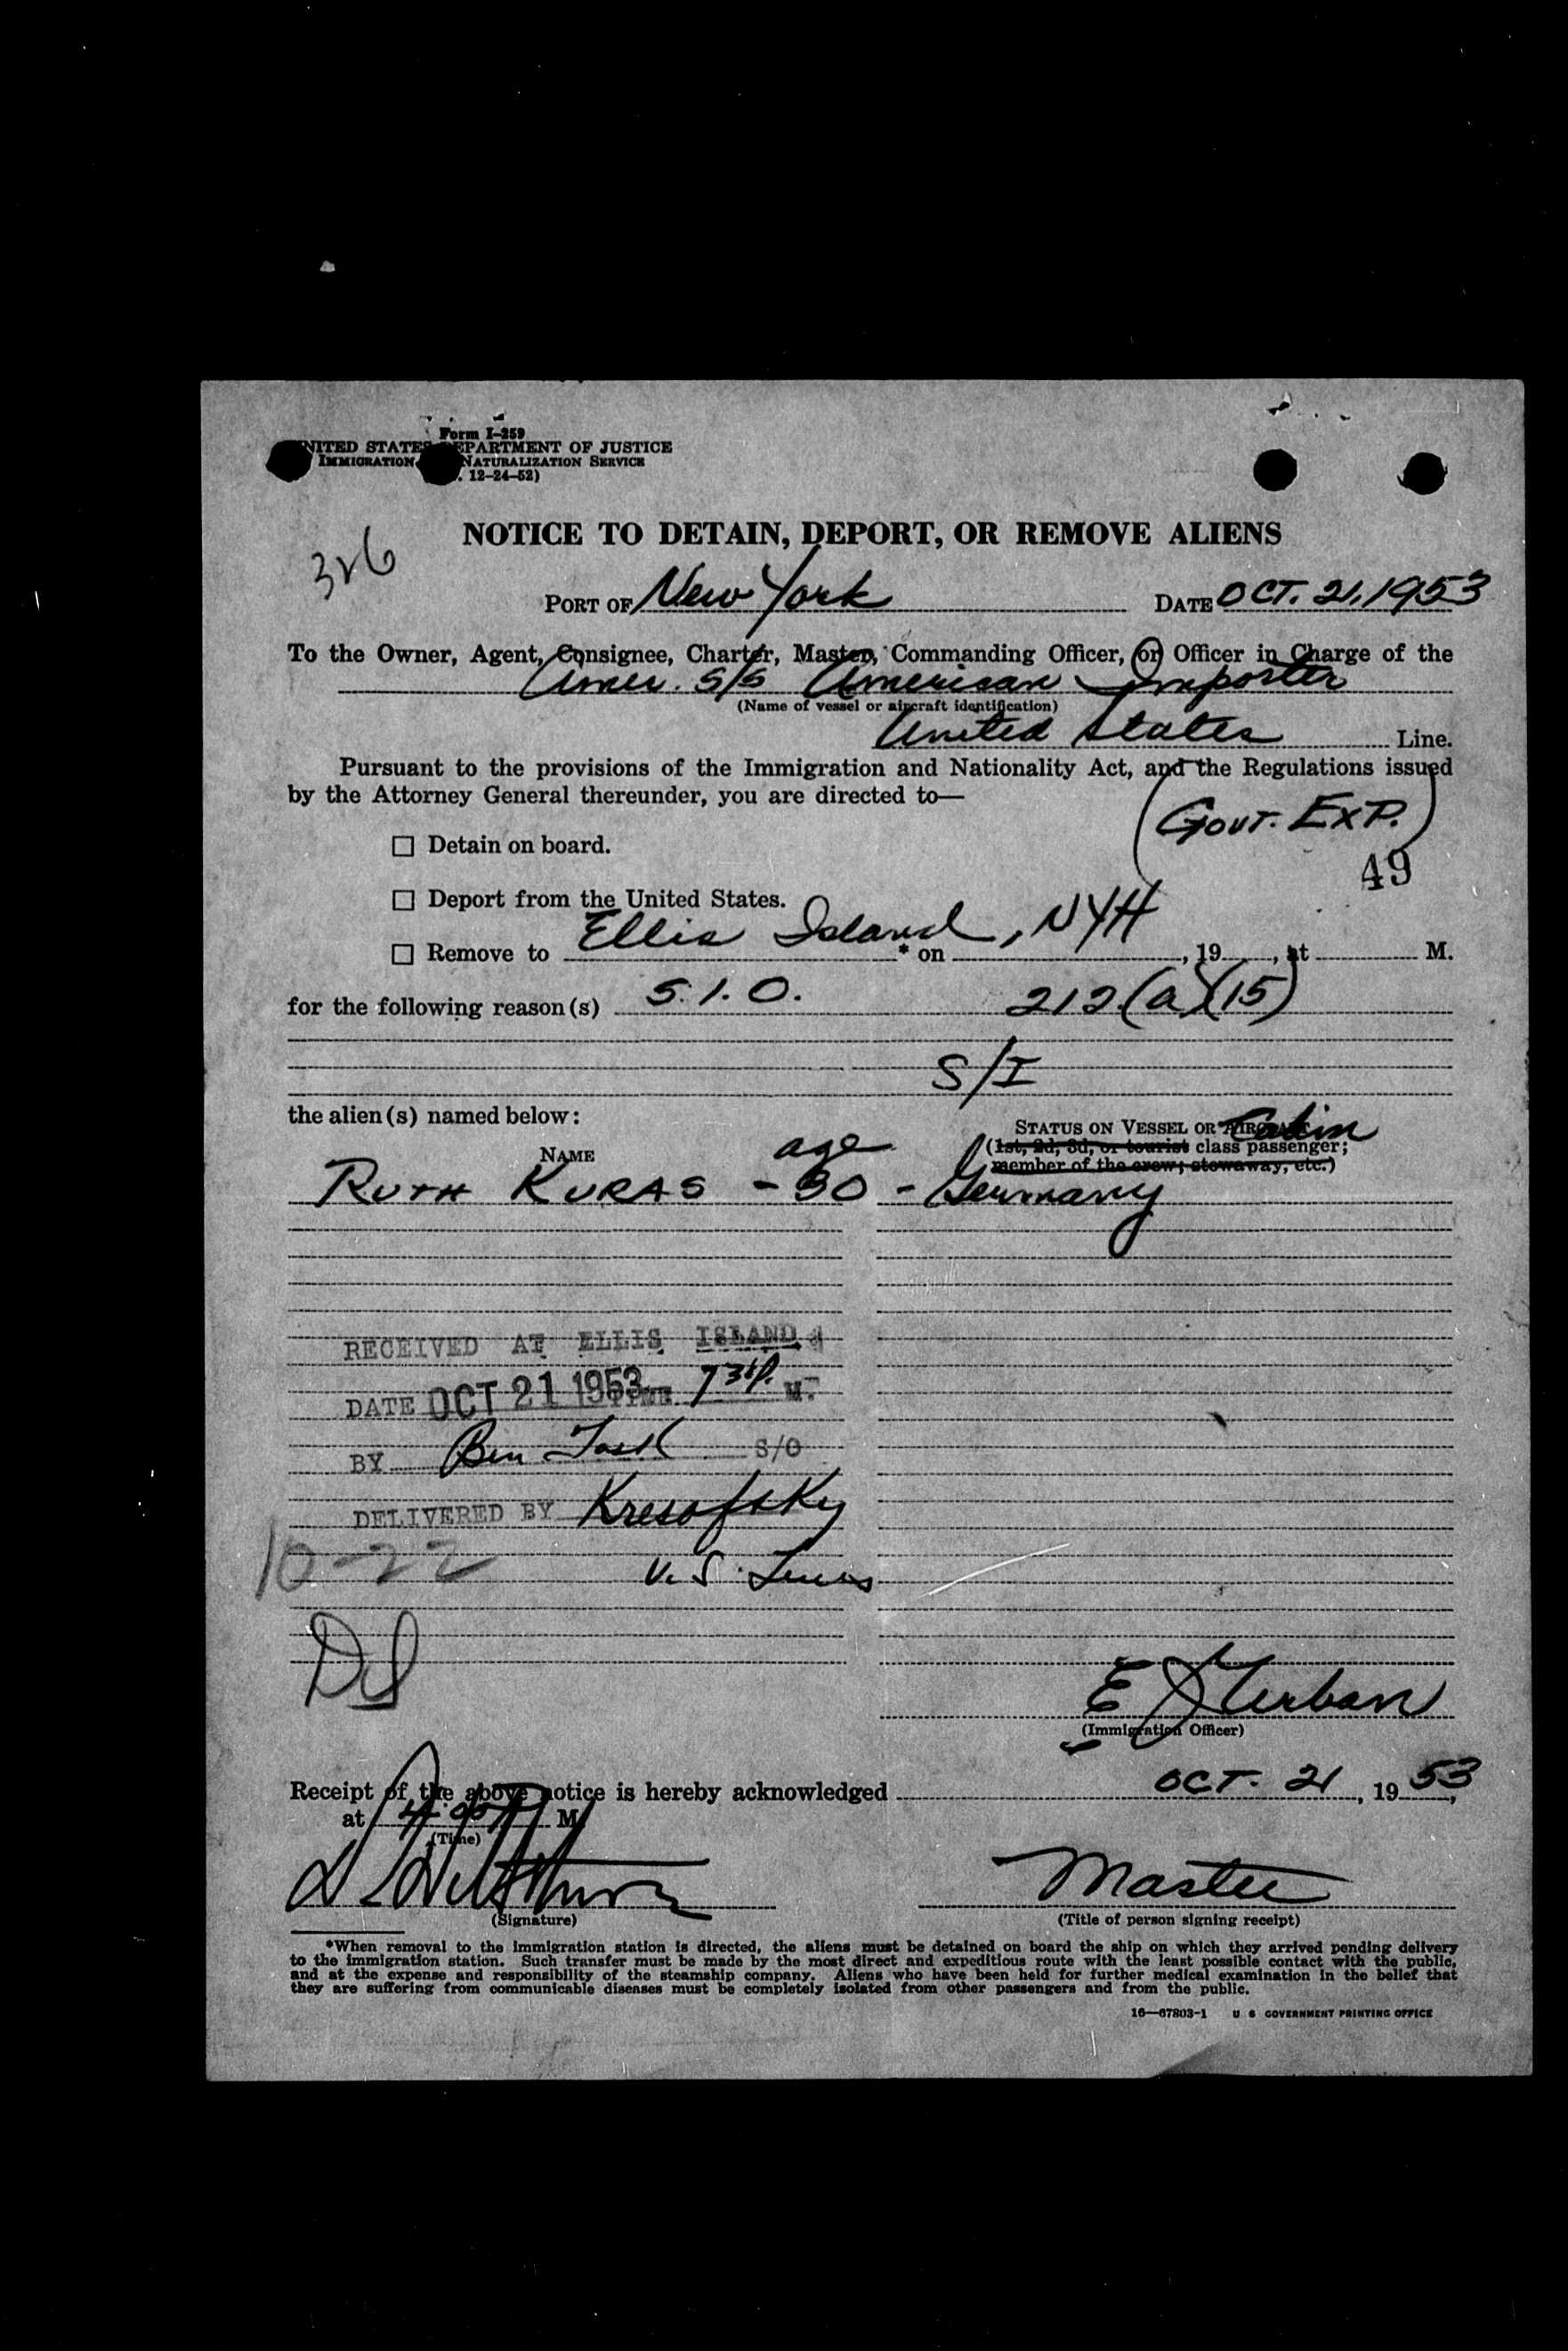 Form I-259
UNITED STATES DEPARTMENT OF JUSTICE
IMMIGRATION NATURALIZATION SERVICE
. 12-24-52)
326
NOTICE TO DETAIN, DEPORT, OR REMOVE ALIENS
PORT OF New York DATE OCT. 21, 1953
To the Owner, Agent, Consignee, Charter, Master, Commanding Officer, or Officer in Charge of the
Amer. S/S American Importer
(Name of vessel or aircraft identification)
United States Line.
Pursuant to the provisions of the Immigration and Nationality Act, and the Regulations issued
by the Attorney General thereunder, you are directed to—
(GOVT. EXP.)
☐ Detain on board.
49
☐ Deport from the United States.
☐ Remove to Ellis Island, NYH * on , 19 , at M.
for the following reason(s) S.I.O. 212(a)(15)
S/I
the alien(s) named below:
STATUS ON VESSEL OR AIRCRAFT Cabin
(1st, 2d, 3d, or tourist class passenger;
member of the crew; stowaway, etc.)
NAME age
RUTH KURAS - 30 - Germany
RECEIVED AT ELLIS ISLAND
DATE OCT 21 1953 TIME M.
BY Ben S/O
DELIVERED BY Kresofsky
10-22 U.S. Lines
E J Urban
(Immigration Officer)
Receipt of the above notice is hereby acknowledged OCT. 21, 1953,
at 4:00 P M.
(Time)
Master
(Signature) (Title of person signing receipt)
*When removal to the immigration station is directed, the aliens must be detained on board the ship on which they arrived pending delivery
to the immigration station. Such transfer must be made by the most direct and expeditious route with the least possible contact with the public,
and at the expense and responsibility of the steamship company. Aliens who have been held for further medical examination in the belief that
they are suffering from communicable diseases must be completely isolated from other passengers and from the public.
16—67803-1 U S GOVERNMENT PRINTING OFFICE